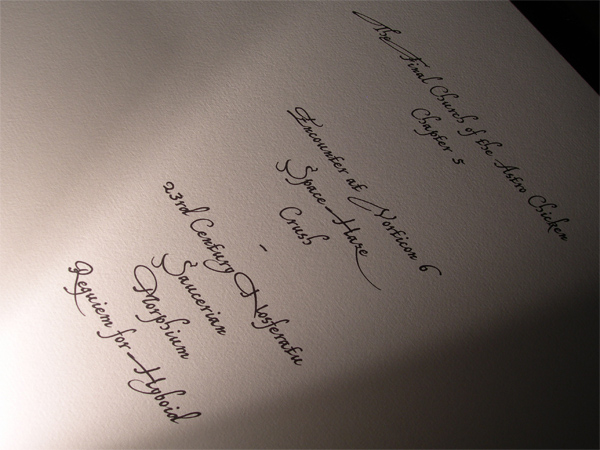 The Final Church of the Astro Chicken
Chapter 5
Encounter at Vorticon 6
Space Haze
Crush
-
23rd Century Nosferatu
Saucerian
Morphium
Requiem for Hyboid